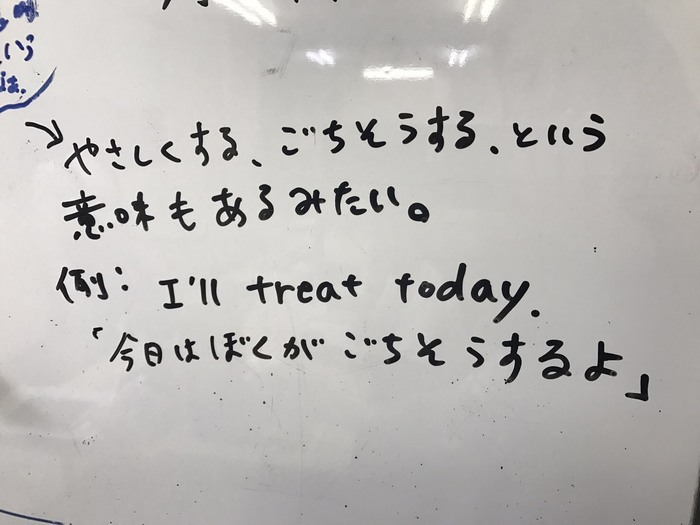 という
は.
→やさしくする、ごちそうする、という
意味もあるみたい。
例: I'll treat today.
「今日はぼくがごちそうするよ」